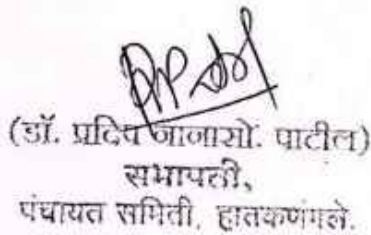 (डॉ. प्रदिप जानासो. पाटील)
सभापती,
पंचायत समिती, हातकणंगले.